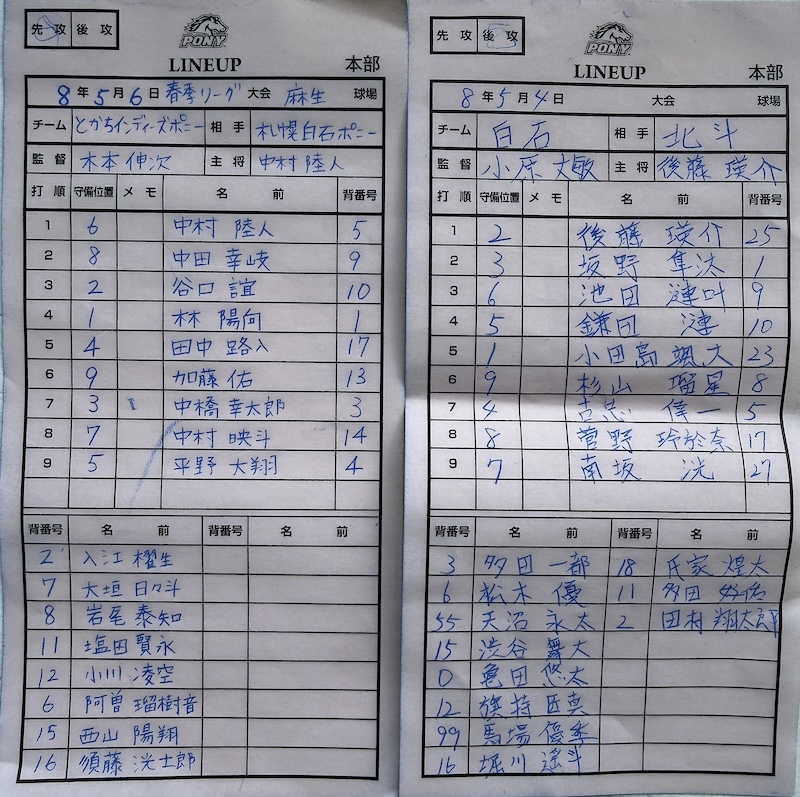 先攻 後攻
PONY
LINEUP 本部
8年5月6日 春季リーグ 大会 麻生 球場
チーム とかちインディーズポニー 相手 札幌白石ポニー
監督 木本伸次 主将 中村陸人
打順 守備位置 メモ 名前 背番号
1 6 中村 陸人 5
2 8 中田 幸岐 9
3 2 谷口 誼 10
4 1 林 陽向 1
5 4 田中 路入 17
6 9 加藤 佑 13
7 3 中橋 幸太郎 3
8 7 中村 映斗 14
9 5 平野 大翔 4
背番号 名前 背番号 名前
2 入江 櫂生
7 大垣 日々斗
8 岩尾 泰知
11 塩田 賢永
12 小川 凌空
6 阿曽 瑠樹音
15 西山 陽翔
16 須藤 洸士郎
先攻 後攻
PONY
LINEUP 本部
8年5月4日 大会 球場
チーム 白石 相手 北斗
監督 小原 丈敏 主将 後藤 瑛介
打順 守備位置 メモ 名前 背番号
1 2 後藤 瑛介 25
2 3 坂野 隼汰 1
3 6 池田 漣叶 9
4 5 鎌田 漣 10
5 1 小田島 颯大 23
6 9 杉山 瑠星 8
7 4 古惣 偉一 5
8 8 菅野 玲於奈 17
9 7 南坂 洸 27
背番号 名前 背番号 名前
3 多田 一都 18 氏家 煌太
6 松木 優 11 多田
55 天沼 永太 2 田村 翔太郎
15 渋谷 舞大
0 亀田 悠太
12 旗持 匠真
99 馬場 優季
16 堀川 遥斗